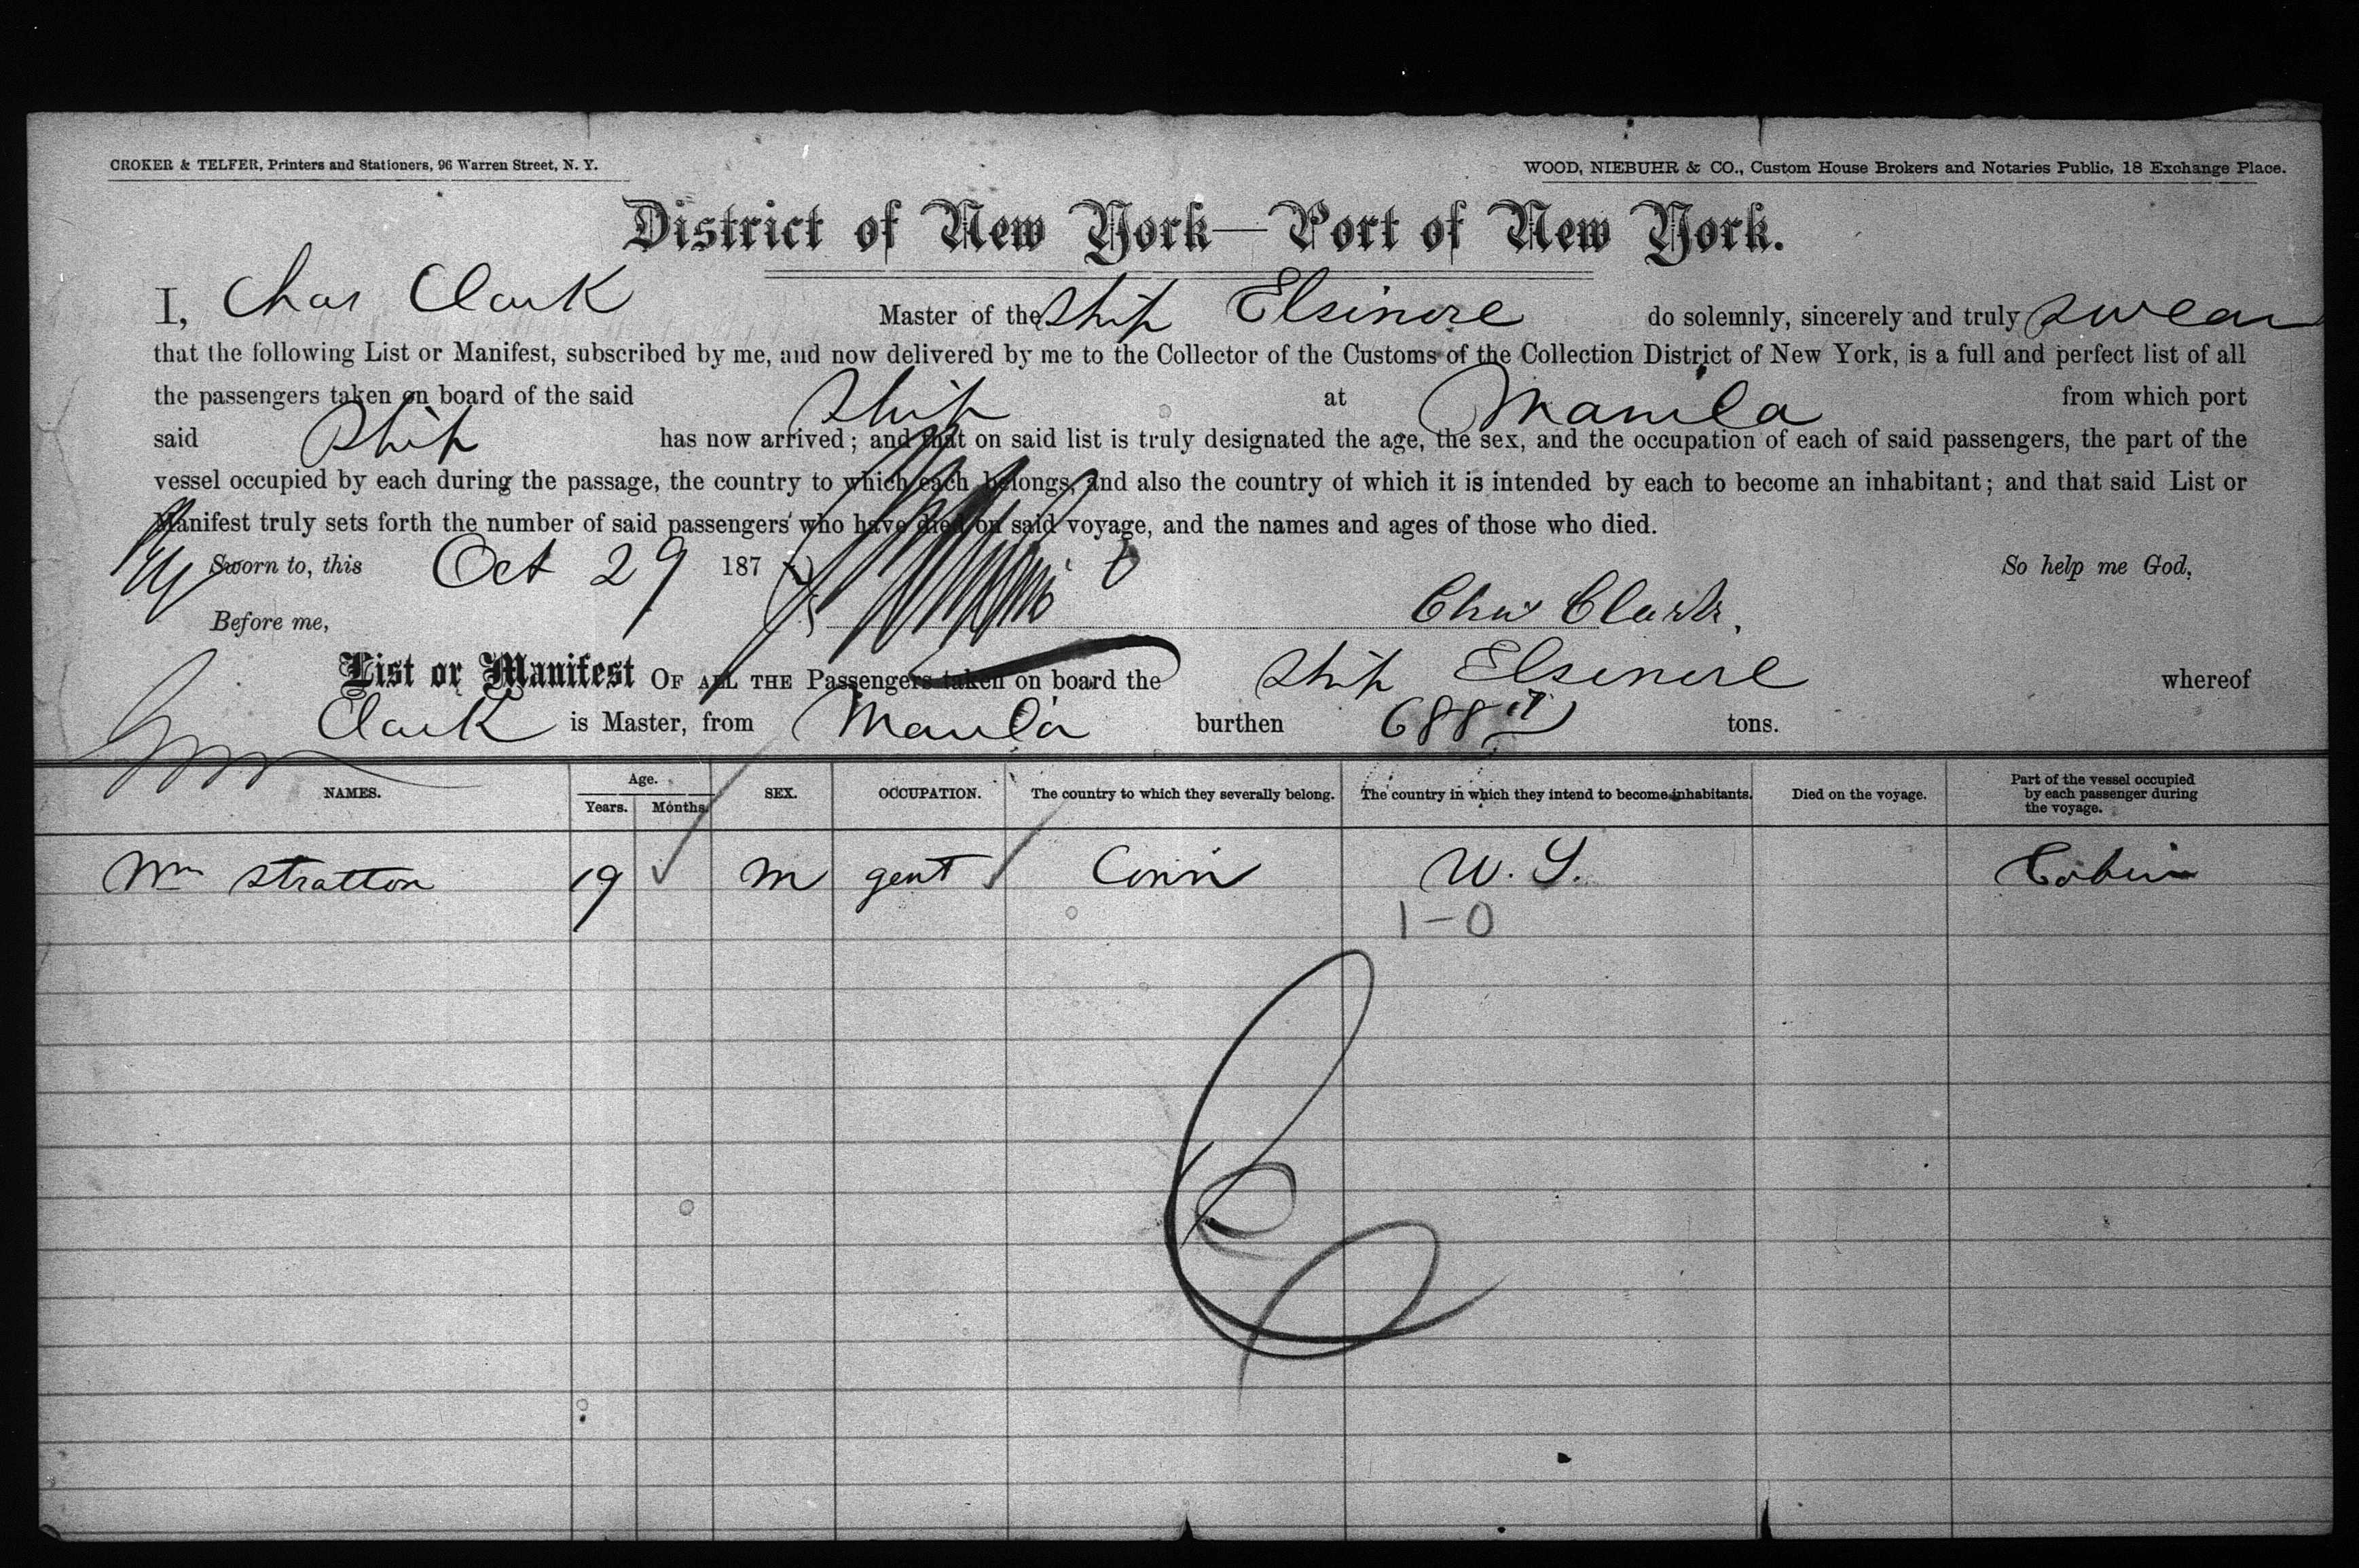 CROKER & TELFER, Printers and Stationers, 96 Warren Street, N. Y.
WOOD, NIEBUHR & CO., Custom House Brokers and Notaries Public, 18 Exchange Place.
District of New York—Port of New York.
I, Chas Clark Master of the Ship Elsinore do solemnly, sincerely and truly swear
that the following List or Manifest, subscribed by me, and now delivered by me to the Collector of the Customs of the Collection District of New York, is a full and perfect list of all
the passengers taken on board of the said Ship at Manila from which port
said Ship has now arrived; and that on said list is truly designated the age, the sex, and the occupation of each of said passengers, the part of the
vessel occupied by each during the passage, the country to which each belongs, and also the country of which it is intended by each to become an inhabitant; and that said List or
Manifest truly sets forth the number of said passengers who have died on said voyage, and the names and ages of those who died.
Sworn to, this Oct 29 187 So help me God,
Before me, Chas Clark.
List or Manifest OF ALL THE Passengers taken on board the Ship Elsinore whereof
Clark is Master, from Manila burthen 688 tons.
NAMES. Age. Years. Months. SEX. OCCUPATION. The country to which they severally belong. The country in which they intend to become inhabitants. Died on the voyage. Part of the vessel occupied by each passenger during the voyage.
Wm Stratton 19 m gent Conn U. S. Cabin
1-0